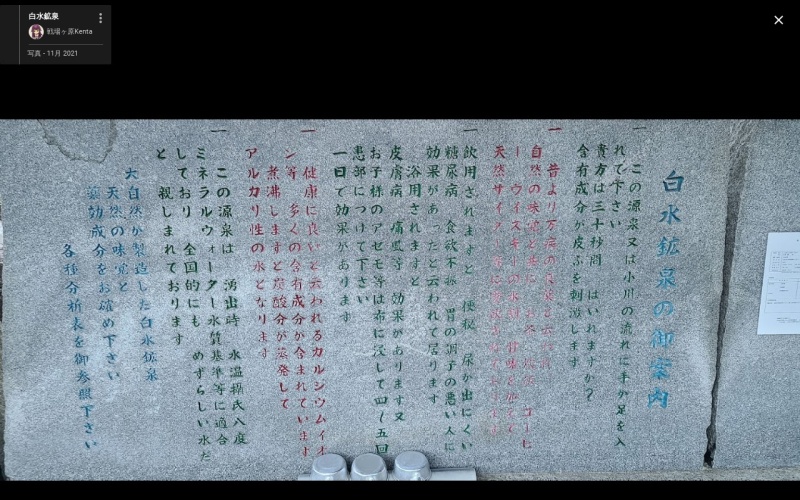 白水鉱泉
戦場ヶ原Kenta
写真 - 11月 2021
白水鉱泉の御案内
一 この源泉又は小川の流れに手か足を入
れて下さい
貴方は三十秒間 はいれますか?
含有成分が皮ふを刺激します
一 昔より万病の
自然の味
天然サイダー
一 飲用されますと 便秘 尿が出にくい
糖尿病 食欲不振 胃の調子の悪い人に
効果があったと云われて居ります
浴用されますと
皮膚病 痛風等 効果があります又
お子様のアセモ等は布に浸して四〜五回
患部につけて下さい
一日で効果があります
一 健康に良いと云われるカルシウムイオ
ン等 多くの含有成分が含まれています
煮沸しますと炭酸分が蒸発して
アルカリ性の水となります
一 この源泉は 湧出時 水温摂氏八度
ミネラルウォーター水質基準等に適合
しており 全国的にも めずらしい水だ
と 親しまれております
大自然が製造した白水鉱泉
天然の味覚と
薬効成分をお確め下さい
各種分析表を御参照下さい